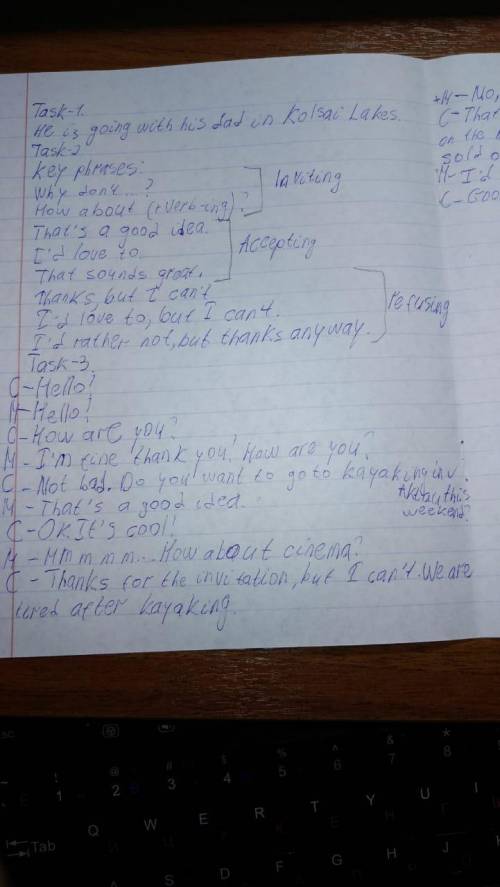 Task-1.
He is going with his dad in Kolsai Lakes.
Task-2
Key phrases:
Why don't....?
How about (+verb-ing)?
Inviting
That's a good idea.
I'd love to.
That sounds great.
Accepting
Thanks, but I can't
I'd love to, but I can't.
I'd rather not, but thanks anyway.
Refusing
Task-3.
C-Hello!
M-Hello!
C-How are you?
M-I'm fine thank you! How are you?
C-Not bad. Do you want to go to kayaking in
this
weekend?
M-That's a good idea.
C-OK. It's cool!
M-Hmmmm....How about cinema?
C-Thanks for the invitation, but I can't. We are
tired after kayaking.
+M-No,
C-That
on the
sold o
M-I'd
C-Goo
Tab
Q W E R T Y U I
1 2 3 4 5 6 7 8
D F G H J